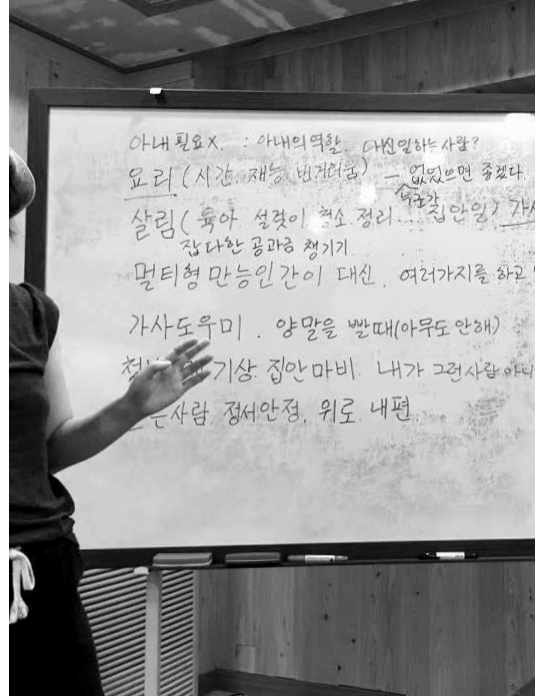 아내 필요X. : 아내의 역할. 대신일하는사람?
요리 (시간. 재능. 번거러움) - 없었으면 좋겠다
누군가
살림 (육아 설겆이 청소. 정리... 집안일)
잡다한 공과금 챙기기
멀티형 만능인간이 대신. 여러가지를 하고
가사도우미. 양말을 빨때(아무도안해)
기상. 집안마비. 내가 그런사람 아니
사람. 정서안정, 위로. 내편.